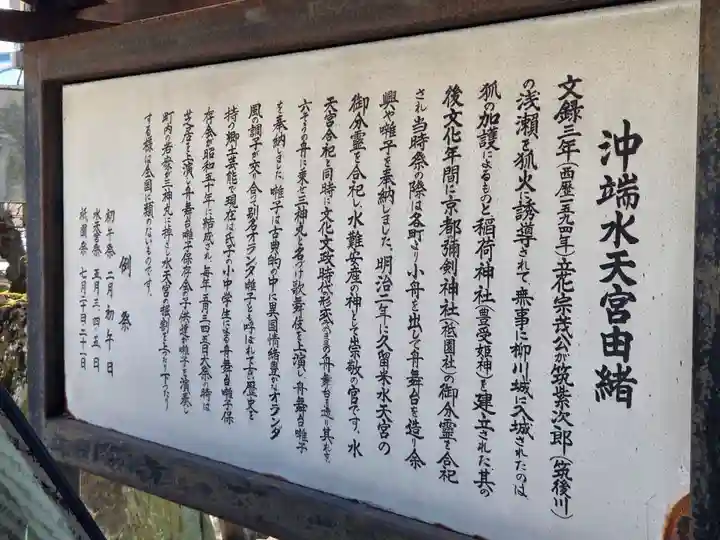 沖端水天宮由緒
文録三年(西歴一五九四年)立花宗茂公が筑紫次郎(筑後川)
の浅瀬を狐火に誘導されて、無事に柳川城に入城されたのは
狐の加護によるものと稲荷神社(豊受姫神)を建立された。其の
後文化年間に京都彌剣神社(祇園社)の御分霊を合祀
され当時祭の際は各町より小舟を出して舟舞台を造り余
興や囃子を奉納しました。明治二年に久留米水天宮の
御分霊を合祀し、水難安産の神として崇敬の宮です。水
天宮合祀と同時に文化文政時代形式の舟舞台を造り其れを、
六そうの舟に乗せ三神丸と名づけ歌舞伎を上演し、舟舞台囃子
を奉納しました。囃子は古典的の中に異国情緒豊かなオランダ
風の調子が交り合って別名オランダ囃子とも呼ばれて古い歴史を
持つ郷土芸能で現在は氏子の小中学生による舟舞台囃子保
存会が昭和五十年に結成され、毎年五月三四五日大祭の時は
芝居を上演し舟舞台囃子保存会の子供達が囃子を演奏し
町内の若衆が三神丸に棹さし水天宮の堀割を上ったり下ったり
する様は全国に類のないものです。
例祭
初午祭 二月初午日
水天宮祭 五月三四五日
祇園祭 七月二十日二十一日